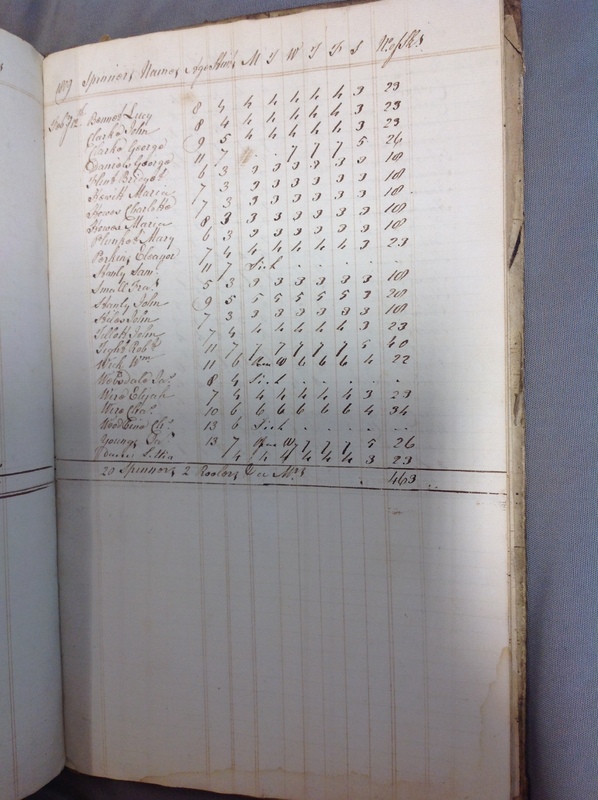 1809 Spinners Names Age Stint M T W T F S No of Sks
Feby 12th Bennet Lucy 8 4 4 4 4 4 4 3 23
Clarke John 8 4 4 4 4 4 4 3 23
Clarke George 9 5 4 4 4 4 4 3 23
Daniels George 11 7 . . 7 7 7 5 26
Flint Bridget 6 3 3 3 3 3 3 3 18
Hewitt Maria 7 3 3 3 3 3 3 3 18
Howes Charlotte 7 3 3 3 3 3 3 3 18
Howes Maria 8 3 3 3 3 3 3 3 18
Plunket Mary 6 3 3 3 3 3 3 3 18
Perkins Eleanor 7 4 4 4 4 4 4 3 23
Stanly Sam 11 7 Sick . . . . .
Small Fras 5 3 3 3 3 3 3 3 18
Stanly John 9 5 5 5 5 5 5 3 28
Silas John 7 3 3 3 3 3 3 3 18
Tillott John 7 4 4 4 4 4 4 3 23
Tight Robt 11 7 7 7 7 7 7 5 40
Wick Wm 11 6 W 6 6 6 4 22
Websdale Jas 8 4 Sick . . . .
Ward Elijah 7 4 4 4 4 4 4 3 23
Ward 10 6 6 6 6 6 6 4 34
13 6 Sick . . . . .
Youngs 13 7 W 7 7 7 5 26
4 4 4 4 4 4 3 23
20 Spinners 2 463